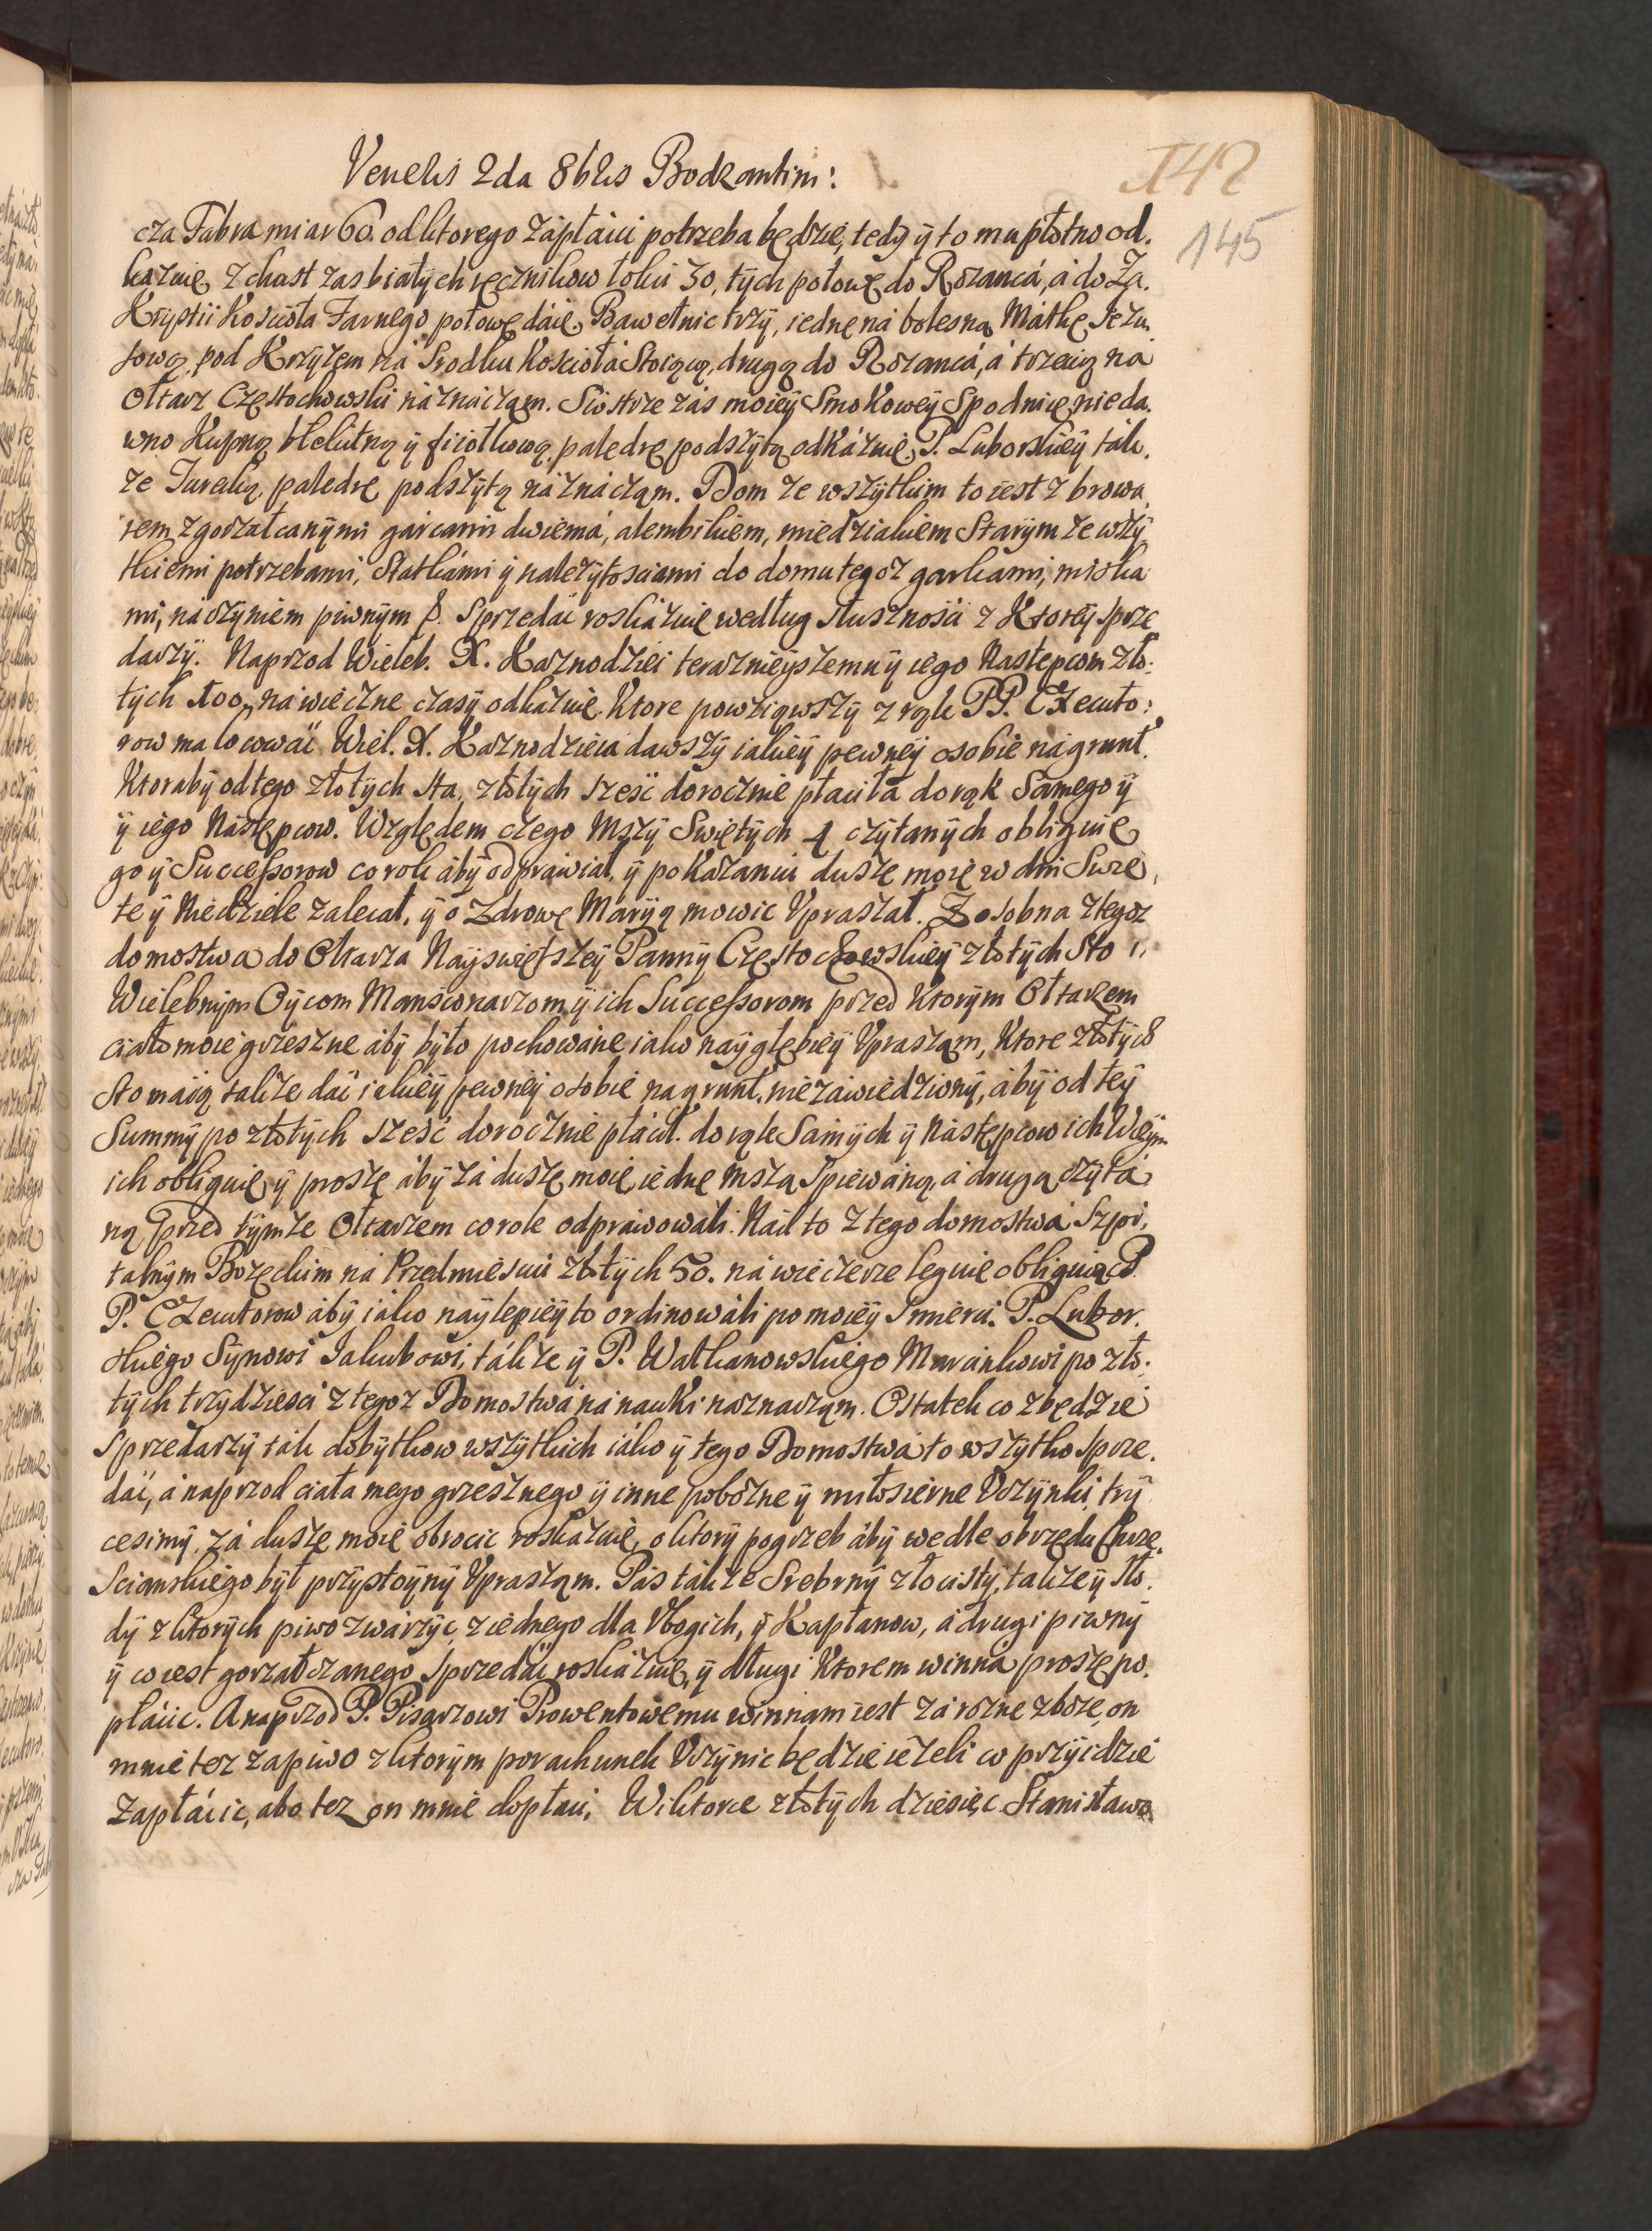 Veneris 2da 8bris Bodzantini:
142
145
cza Fabra miar 60. od ktorego zápłáici potrzeba będzie, tedy ÿ to mu płotno od.
kázuię, z chust zas białych ręcznikow łokci 30, tych połowę do Rozancá, á do Za.
Krystii Kościoła Farnego połowę dáię, Bawełnic trzÿ, iednę ná bolesną Mátkę Jezu.
sową, pod Krzyżem ná Srodku Kościołá Stoiącą, drugą do Rozancá, á trzecią na
Ołtarz Częstochowski náznáczam. Siostrze zás moieÿ Smokoweÿ Spodnicę nieda.
wno Kupną błekitną ÿ fiiołkową, paledrę podszÿtą odkázuię, P. Luborskieÿ ták.
że Turecką, paledrę podszÿtą náznácząm. Dom ze wszÿtkim to iest z browa
rem, z gorzałcanÿmi gárcami dwiemá, alembikiem, miedziakiem Starÿm ze wszÿ
tkiemi potrzebami, Statkámi ÿ należÿtosciami do domu tegoż garkami, miska
mi, náczÿniem piwnÿm p. Sprzedáć roskázuię według słuszności z Ktoreÿ sprze
dażÿ. Naprzod Wieleb. X. Kaznodziei terazniejszemu ÿ iego Następcom zło.
tÿch 100, ná wieczne czasÿ odkázuię. Ktore powziąwszÿ z rąk PP. Exekuto:
row ma locowáć Wiel. X. Kaznodzieia dawszÿ iakieÿ pewneÿ osobie ná grunt.
Ktorabÿ od tego złotÿch sta, złotÿch sześć dorocznie płaciła do rąk Samego ÿ
ÿ iego Następcow. Względem czego Mszÿ Swiętÿch 4 czÿtanÿch obliguię
go ÿ Successorow co rok ábÿ odpráwiał, ÿ po Kazaniu duszę moię w dni Swię,
te ÿ Niedziele zalecał, ÿ o Zdrowę Marÿą mowic Vpraszał. Zosobna z tegoz
domostwa do Ołtarza Nayswiętszeÿ Pannÿ Częstochowskieÿ złotÿch Sto
Wielebnym Oÿcom Mansionarzom ÿ ich Successorom przed Ktorym Ołtarzem
ciało moie grzeszne ábÿ bÿło pochowáne iako naÿgłębieÿ Vprasząm, Ktore złotÿch
sto máią także dáć iakieÿ pewneÿ osobie na grunt, niezáwiedzionÿ, ábÿ od teÿ
Summÿ po złotÿch sześć dorocznie płácił. do rąk Samÿch ÿ Następcow ich
ich obliguię ÿ proszę ábÿ zá duszę moię iednę Mszą Spiewáną, á drugą czÿtá
ną przed tÿmże Ołtarzem co rok odpráwowáli. Nád to z tego domostwá Szpi,
talnÿm Bożęckim ná Przedmieściu złotÿch 50. ná wieczerze leguię obliguiąc P.
P. Exekutorow ábÿ iáko naÿlepieÿ to ordinowáli po moieÿ Smierci. P. Lubor.
skiego Sÿnowi Jakubowi, tákże ÿ P. Watkanowskiego Marcinkowi po zło.
tÿch trzÿdzieści z tegoz Domostwá ná nauki náznaczam. Ostatek co zbędzie
Sprzedażÿ ták dobÿtkow wszÿtkich iáko ÿ tego Domostwá to wszÿtko sprze.
dáć, á naprzod ciała mego grzesznego ÿ inne pobożne ÿ miłosierne Vczÿnki, trÿ
cesimÿ, zá duszę moię obrocic roskázuię, o ktorÿ pogrzeb ábÿ wedle obrzędu Chrze.
sciańskiego bÿł przÿstoÿnÿ Vprasząm. Pás tákże Srebrnÿ złocistÿ, także ÿ sło.
dÿ z ktorÿch piwo zwárzÿc, z iednego dla Vbogich, ÿ Kapłanow, á drugi piwnÿ
ÿ co iest gorzałczanego sprzedáć roskázuię, ÿ długi Ktorem winná proszę po.
płácic. A naprzod P. Pisarzowi Prowentowemu winnam iest zá rożne zboże, on
mnie tez zápiwo z ktorÿm porachunek Vczÿnic będzie ieżeli co przÿidzie
zápłácic, abo tez on mnie dopłaci, Wiktorce złotÿch dziesięc Stanisławo.